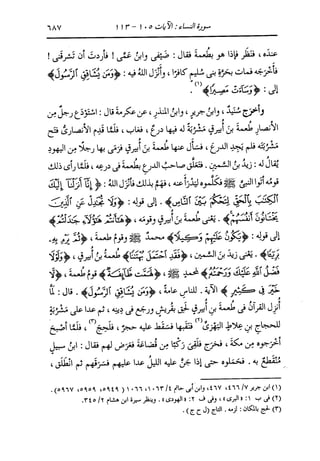 سورة النساء: الآيات ١٠٥ - ١١٣ ٦٨٧
عنده، فنَظَر فإذا هو بطُعمةَ فقال: ضيفى وابنُ عَمِّى! فأردتَ أن تسرِقَنى!
فأَخرَجه فمات بحَرَّةِ بنى سُليمٍ كافرًا، وأنزَل اللهُ فيه: ﴿وَمَن يُشَاقِقِ ٱلرَّسُولَ﴾
إلى: ﴿وَسَآءَتْ مَصِيرًا﴾(١).
وأخرَج سُنَيدٌ، وابنُ جريرٍ، وابنُ المنذرِ، عن عكرمةَ قال: استَودَع رجلٌ مِن
الأنصارِ طُعمةَ بنَ أُبَيرِقٍ مَشْرُبَةً له فيها دِرعٌ، فغاب، فلَمَّا قدِم الأنصارىُّ فتَح
مَشْرُبَتَه فلم يَجِدِ الدرعَ، فسأَل عنها طُعمةَ بنَ أُبَيرِقٍ فرَمَى بها رجلًا مِن اليهودِ
يُقالُ له: زيدُ بنُ السَّمينِ. فتَعلَّق صاحبُ الدرعِ بطُعمةَ فى درعِه، فلَمَّا رأَى ذلك
قومُه أتَوا النبىَّ ﷺ فكَلَّموه ليَدْرَأَ عنه، فهَمَّ بذلك فأنزَل اللهُ: ﴿إِنَّآ أَنزَلْنَآ إِلَيْكَ
ٱلْكِتَٰبَ بِٱلْحَقِّ لِتَحْكُمَ بَيْنَ ٱلنَّاسِ﴾. إلى قوله: ﴿وَلَا تُجَٰدِلْ عَنِ ٱلَّذِينَ
يَخْتَانُونَ أَنفُسَهُمْ﴾. يعنى طُعمةَ بنَ أُبَيرِقٍ وقومَه، ﴿هَٰٓأَنتُمْ هَٰٓؤُلَآءِ جَٰدَلْتُمْ﴾
إلى قولِه: ﴿يَكُونُ عَلَيْهِمْ وَكِيلًا﴾ محمدٌ ﷺ وقومُ طعمةَ، ﴿ثُمَّ يَرْمِ بِهِۦ
بَرِيٓـًٔا﴾. يعنى زيدَ بنَ السَّمينِ، ﴿فَقَدِ ٱحْتَمَلَ بُهْتَٰنًا﴾ طُعمةُ بنُ أُبَيرِقٍ، ﴿وَلَوْلَا
فَضْلُ ٱللَّهِ عَلَيْكَ وَرَحْمَتُهُۥ﴾ لمحمدٍ ﷺ، ﴿لَهَمَّت طَّآئِفَةٌ﴾ قومُ طُعمةَ، ﴿لَّا
خَيْرَ فِى كَثِيرٍ﴾ الآية. للناسِ عامةً، ﴿وَمَن يُشَاقِقِ ٱلرَّسُولَ﴾. قال: لَمَّا
أُنزِل القرآنُ فى طُعمةَ بنِ أُبَيرِقٍ لَحِق بقُريشٍ ورجَع فى دِينِه، ثم عَدا على مَشْرُبةٍ
للحجاجِ بنِ عِلاطٍ البَهْزِىِّ(٢) فنَقَبها فسقَط عليه حجرٌ، فلَحِج(٣)، فلمَّا أصبَح
أخرَجوه مِن مكةَ، فخرَج فلَقِى رَكبًا مِن قُضاعةَ فعَرَض لهم فقال: ابنُ سبيلٍ
مُنقطَعٌ به. فحمَلوه حتى إذا جَنَّ عليه الليلُ عدا عليهم فسَرَقهم ثم انطَلَق،
(١) ابن جرير ٧/ ٤٦٦، ٤٦٧، وابن أبى حاتم ٤/ ١٠٦٣، ١٠٦٦ (٥٩٤٩، ٥٩٥٩، ٥٩٦٧).
(٢) فى ب ١: «البرى»، وفى ف ٢: «الهودى». وينظر سيرة ابن هشام ٢/ ٣٤٥.
(٣) لحج بالمكان: لزمه. التاج (ل ح ج).